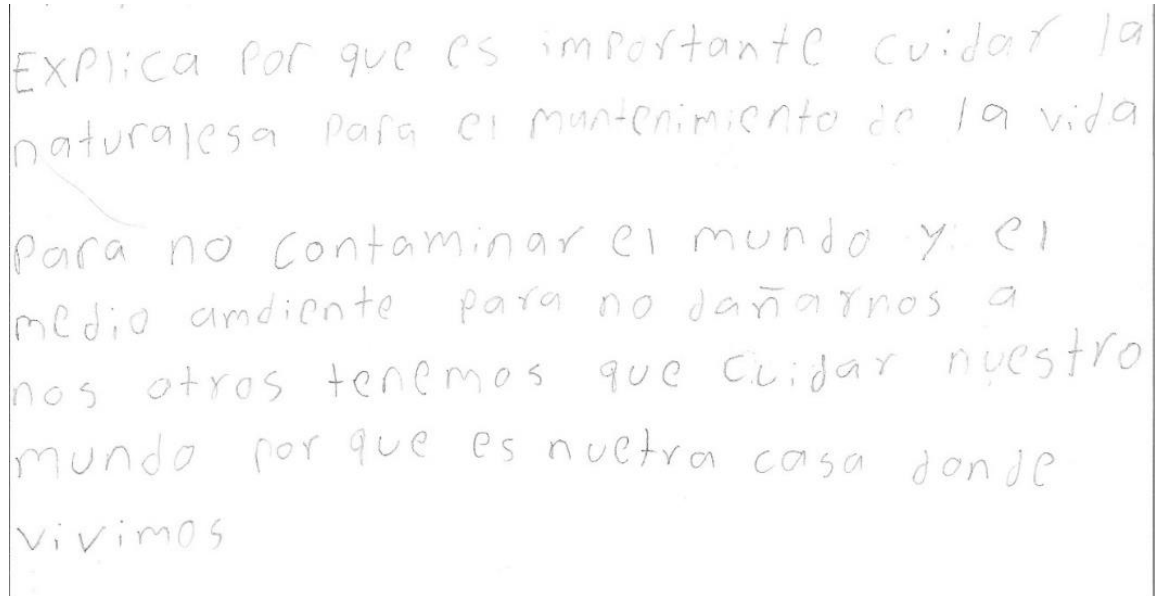 Explica por que es importante cuidar la
naturalesa para el mantenimiento de la vida
para no contaminar el mundo y el
medio amdiente para no dañarnos a
nos otros tenemos que cuidar nuestro
mundo por que es nuetra casa donde
vivimos